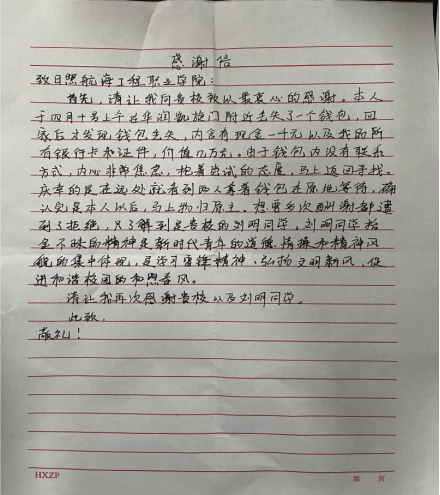 感谢信
致日照航海工程职业学院：
首先，请让我向贵校致以最衷心的感谢。本人
于四月十号上午在华润凯旋门附近丢失了一个钱包，回
家后才发现钱包丢失，内含有现金一千元以及我的所
有银行卡和证件，价值几万元，由于钱包内没有联系
方式，内心非常焦急，抱着尝试的态度，马上返回寻找。
庆幸的是在远处就看到两人拿着钱包在原地等待，确
认完是本人以后，马上物归原主。想要多次酬谢都遭
到了拒绝，只了解到是贵校的刘明同学，刘明同学拾
金不昧的精神是新时代青年的道德情操和精神风
貌的集中体现，是学习雷锋精神、弘扬文明新风，促
进和谐校园的和煦春风。
请让我再次感谢贵校以及刘明同学。
此致，
敬礼！
HXZP
第 页